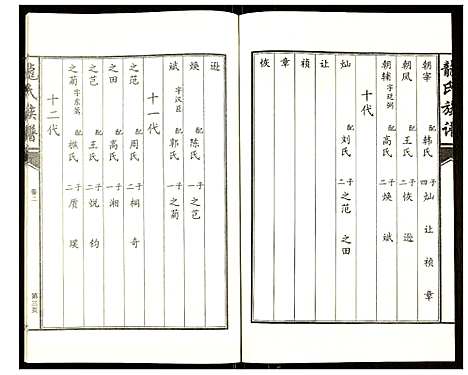 龍氏族譜
朝宰 配韩氏 四子 灿 让 祯 章
朝凤 配王氏 二子 恢 逊
朝辅 字廷弼 配高氏 二子 焕 斌
十代
灿 配刘氏 二子 之范 之田
让
祯
章
恢
逊
焕 配陈氏 一子 之芑
斌 字汉臣 配郭氏 一子 之蔺
十一代
之范 配周氏 二子 桐 奇
之田 配高氏 一子 湘
之芑 配王氏 二子 悦 钧
之蔺 字东蒿 配张氏 二子 质 璞
十二代
龍氏族譜
卷二
第三页